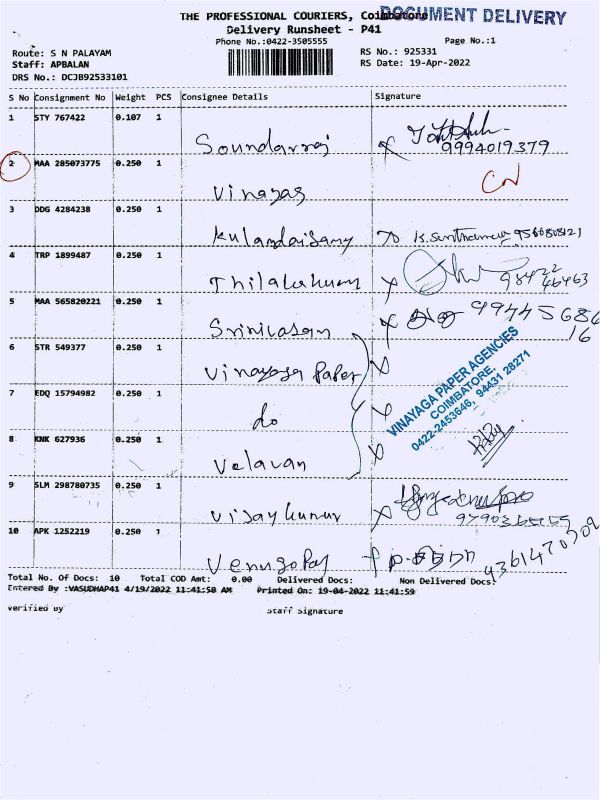 THE PROFESSIONAL COURIERS, Coimbatore
DOCUMENT DELIVERY
Delivery Runsheet - P41
Phone No.:0422-3505555
Page No.:1
Route: S N PALAYAM
RS No.: 925331
Staff: APBALAN
RS Date: 19-Apr-2022
DRS No.: DCJB92533101
S No Consignment No Weight PCS Consignee Details Signature
1 STY 767422 0.107 1
Soundarraj 9994019379
2 MAA 285073775 0.250 1
Vinayag
3 DDG 4284238 0.250 1
Kulandaisamy
4 TRP 1899487 0.250 1
Thilakakumar
5 MAA 565820221 0.250 1
Srinivasan 99445686
16
6 STR 549377 0.250 1
Vinayaga Paper
VINAYAGA PAPER AGENCIES
COIMBATORE.
0422-2453646, 94431 28271
7 EDQ 15794982 0.250 1
do
8 KNK 627936 0.250 1
Velavan
9 SLM 298780735 0.250 1
Vijaykumar
10 APK 1252219 0.250 1
Venugopal
Total No. Of Docs: 10 Total COD Amt: 0.00 Delivered Docs: Non Delivered Docs:
Entered By :VASUDHAP41 4/19/2022 11:41:58 AM Printed On: 19-04-2022 11:41:59
verified by Staff Signature